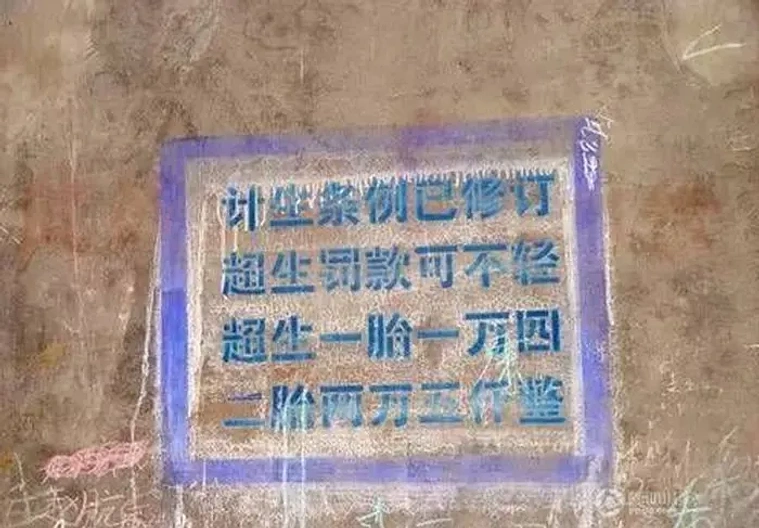 计生条例已修订
超生罚款可不轻
超生一胎一万四
二胎两万五仟整